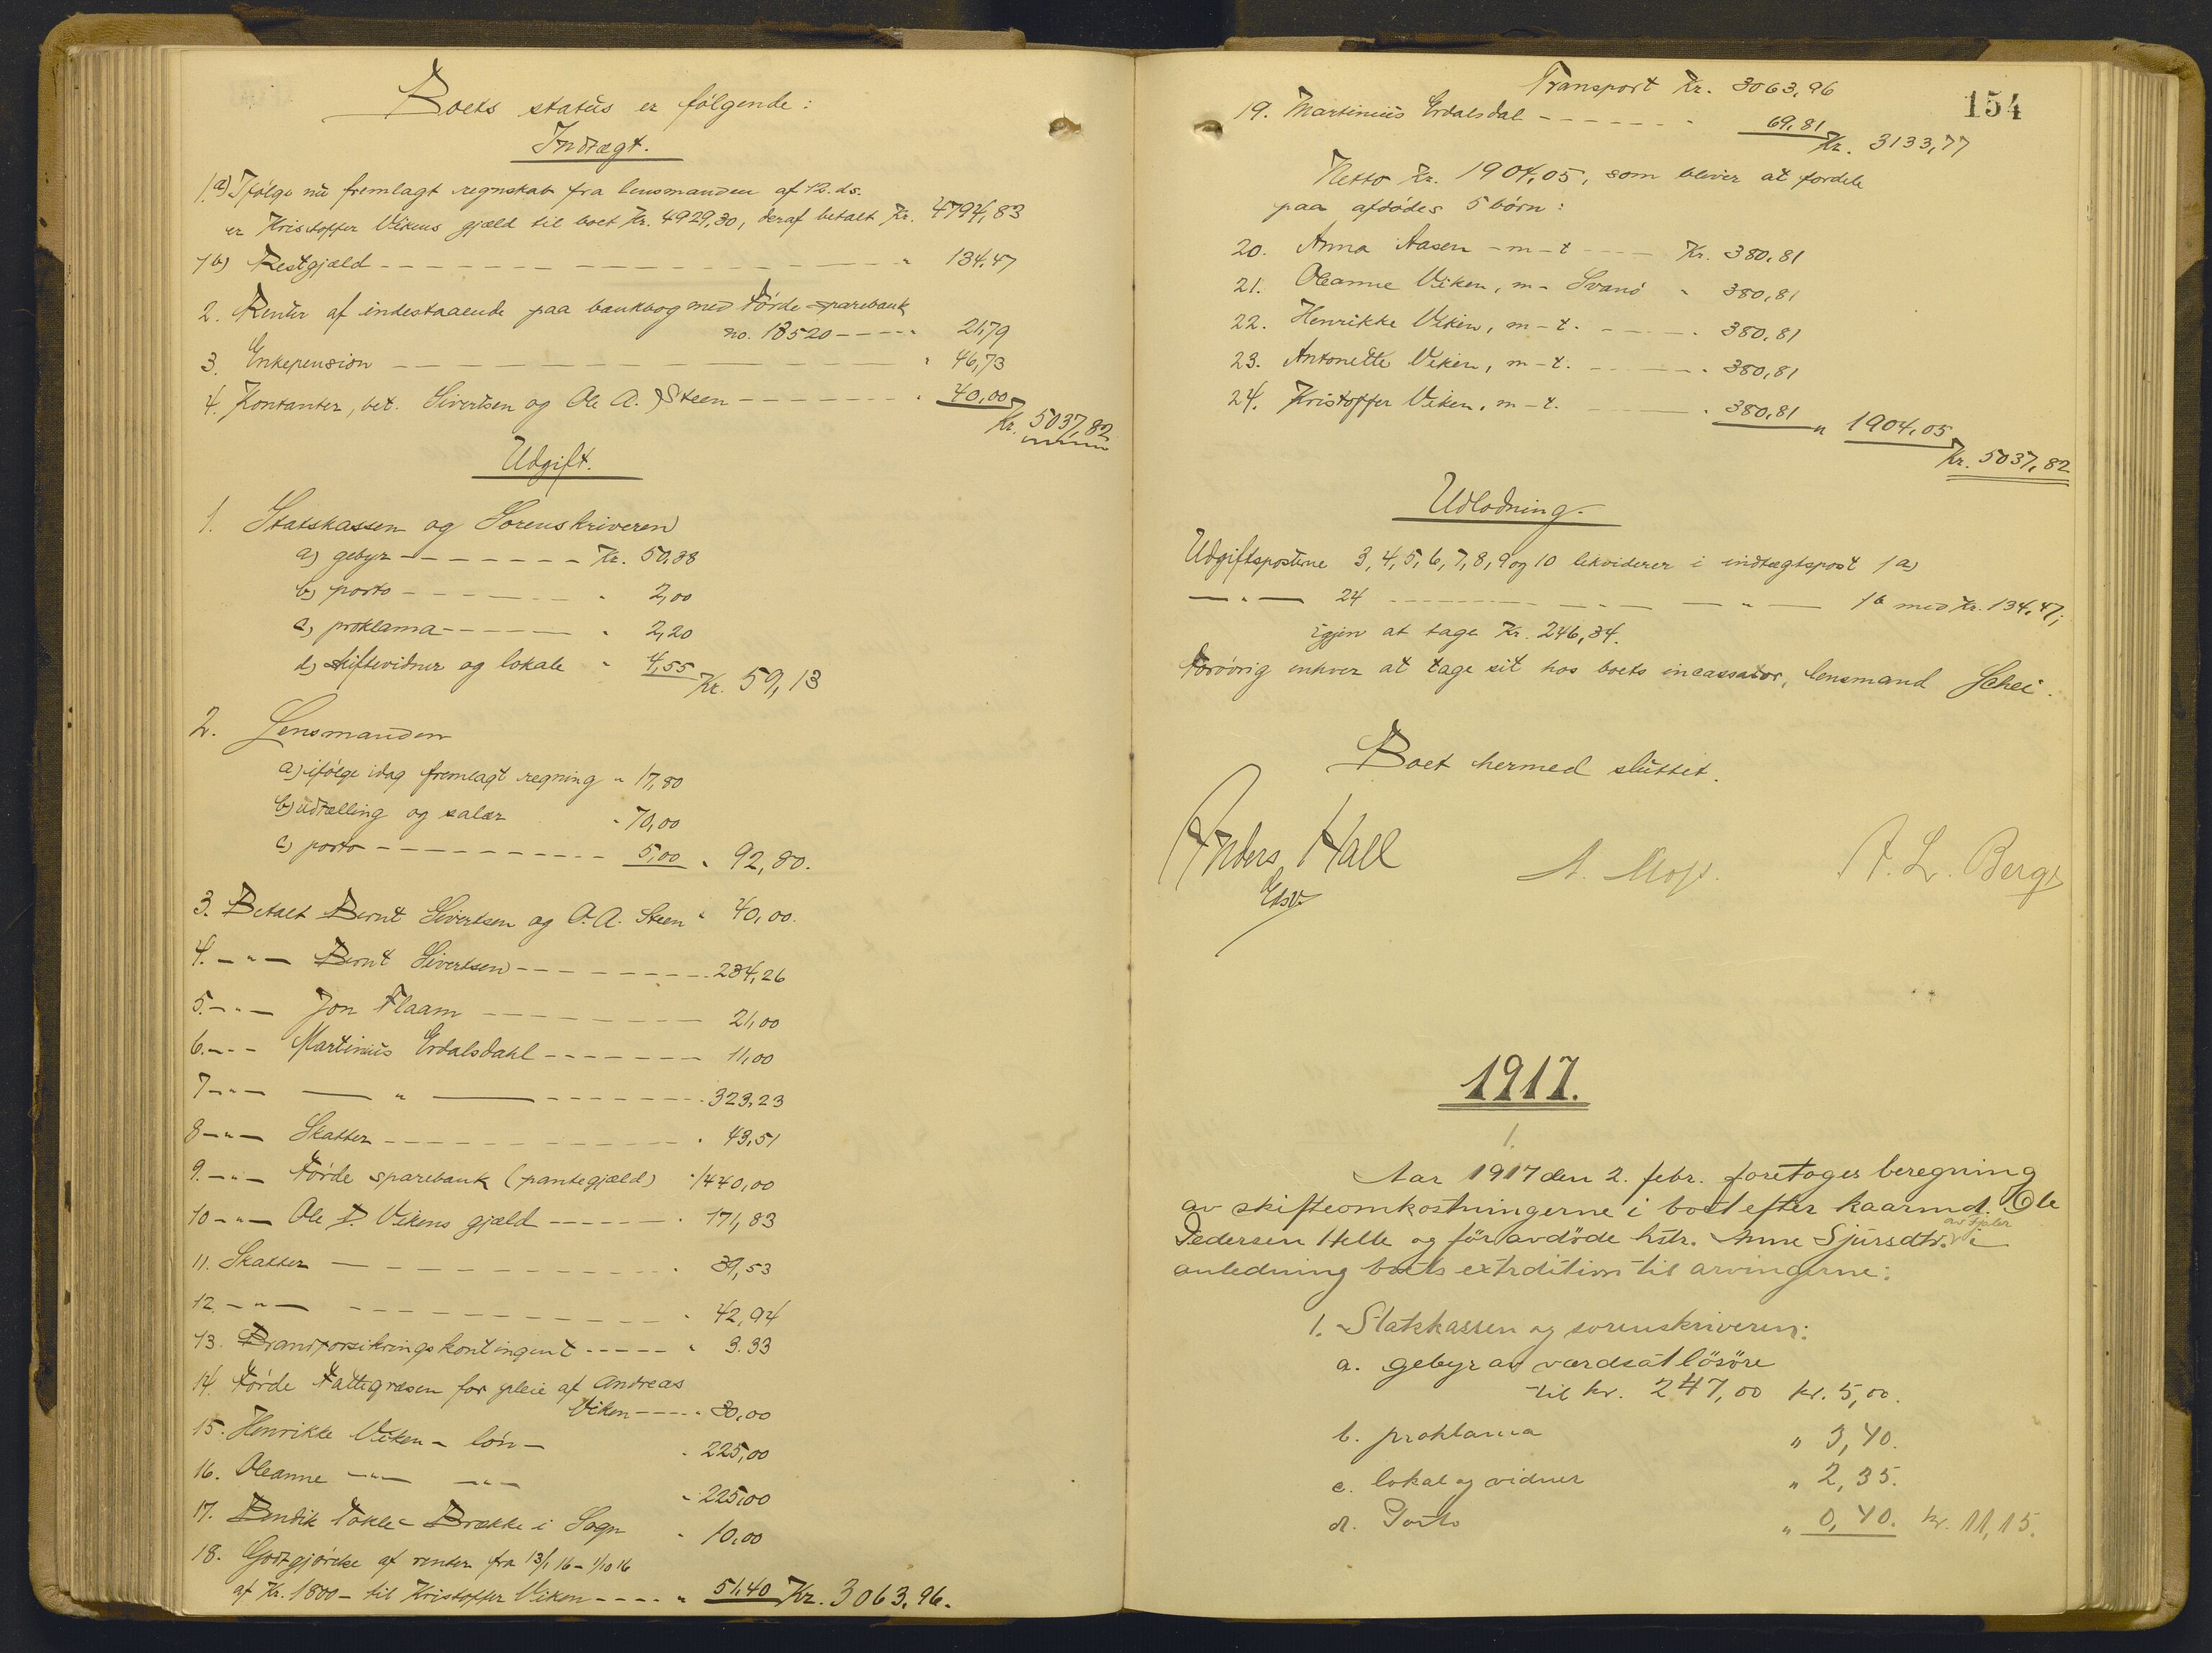 Boets status er følgende:
Indtægt.
1.a) Ifølge nu fremlagt regnskab fra lensmanden af 12. ds.
er Kristoffer Vikens gjæld til boet Kr. 4929,30, deraf betalt Kr. 4794,83
1b) Restgjæld - - - - " 134,47
2. Renter af indestaaende paa bankbog med Førde sparebank
no. 18520 - - - - " 21,79
3. Enkepension - - - - " 46,73
4. Kontanter, bet. Sivertsen og Ole A. Steen - - - - " 40,00
Kr. 5037,82
Udgift.
1. Statskassen og Sorenskriveren
a) gebyr - - - - Kr. 50,38
b) porto - - - - " 2,00
c) proklama - - - - " 2,20
d) skiftevidner og lokale " 4,55
Kr. 59,13
2. Lensmanden
a) ifølge idag fremlagt regning " 17,80
b) udtælling og salær " 70,00
c) porto - - - - 5,00 " 92,80.
3. Betalt Bernt Sivertsen og O. A. Steen " 40,00.
4. - " - Bernt Sivertsen - - - - 234,26
5. - " - Jon Flaam - - - - 21,00
6. - " - Martinius Erdalsdahl - - - - 11,00
7 - " - — " — - - - - 323,23
8 - " - Skatter - - - - " 43,51
9. - " - Førde sparebank (pantegjæld) " 1440,00
10 - " - Ole P. Vikens gjæld - - - - " 171,83
11. Skatter - - - - " 39,53
12. - " - - - - - " 42,94
13. Brandforsikringskontingent - - - - " 3.33
14. Førde Fattigvæsen for pleie af Andreas
Viken - - - - " 30,00
15. Henrikke Viken - løn - " 225,00
16. Oleanne - " - - " - " 225,00
17. Bendik Takle - Brække i Sogn " 10,00
18. Godtgjørelse af renter fra 13/1 16 - 1/10 16
af Kr. 1800 - til Kristoffer Viken - - - - " 51,40 Kr. 3063,96.
154
Transport Kr. 3063,96
19. Martinius Erdalsdal - - - - " 69,81
Kr. 3133,77
Netto Kr. 1904,05, som bliver at fordele
paa afdødes 5 børn:
20. Anna Aasen - m - t - - - - Kr. 380,81
21. Oleanne Viken, m - Svanø " 380,81
22. Henrikke Viken, m - t. - - - - " 380,81
23. Antonette Viken, m - t. - - - - " 380,81
24. Kristoffer Viken, m - t. - - - - " 380,81 " 1904,05
Kr. 5037,82
Udlodning.
Udgiftsposterne 3, 4, 5, 6, 7, 8, 9 og 10 likviderer i indtægtspost 1a)
— " — 24 - - - - — " — — " — 1b med Kr. 134,47;
igjen at tage Kr. 246,34.
Forøvrig enhver at tage sit hos boets incassator, lensmand Schei.
Boet hermed sluttet.
Anders Hall
A. L. Berge
1917.
1.
Aar 1917 den 2. febr. foretoges beregning
av skifteomkostningerne i boet efter kaarmd. Ole
Pedersen Helle og før avdøde hstr. Anne Sjursdtr. av Fjaler i
anledning boets extradition til arvingerne:
1. Statskassen og sorenskriveren:
a. gebyr av værdsat løsøre
til kr. 247,00 kr. 5,00.
b. proklama " 3,40.
c. lokal og vidner " 2,35.
d. Porto " 0,40. kr. 11,15.